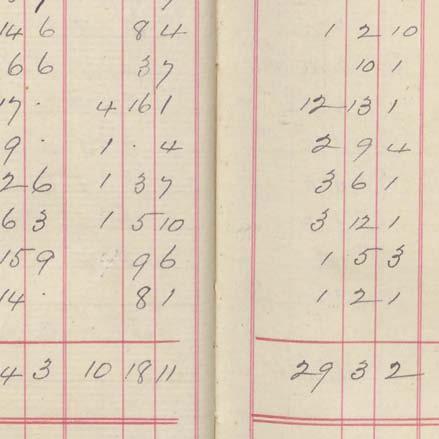 14 6 8 4 1 2 10
6 6 3 7 10 1
17 . 4 16 1 12 13 1
9 . 1 . 4 2 9 4
2 6 1 3 7 3 6 1
6 3 1 5 10 3 12 1
15 9 9 6 1 5 3
14 . 8 1 1 2 1
4 3 10 18 11 29 3 2